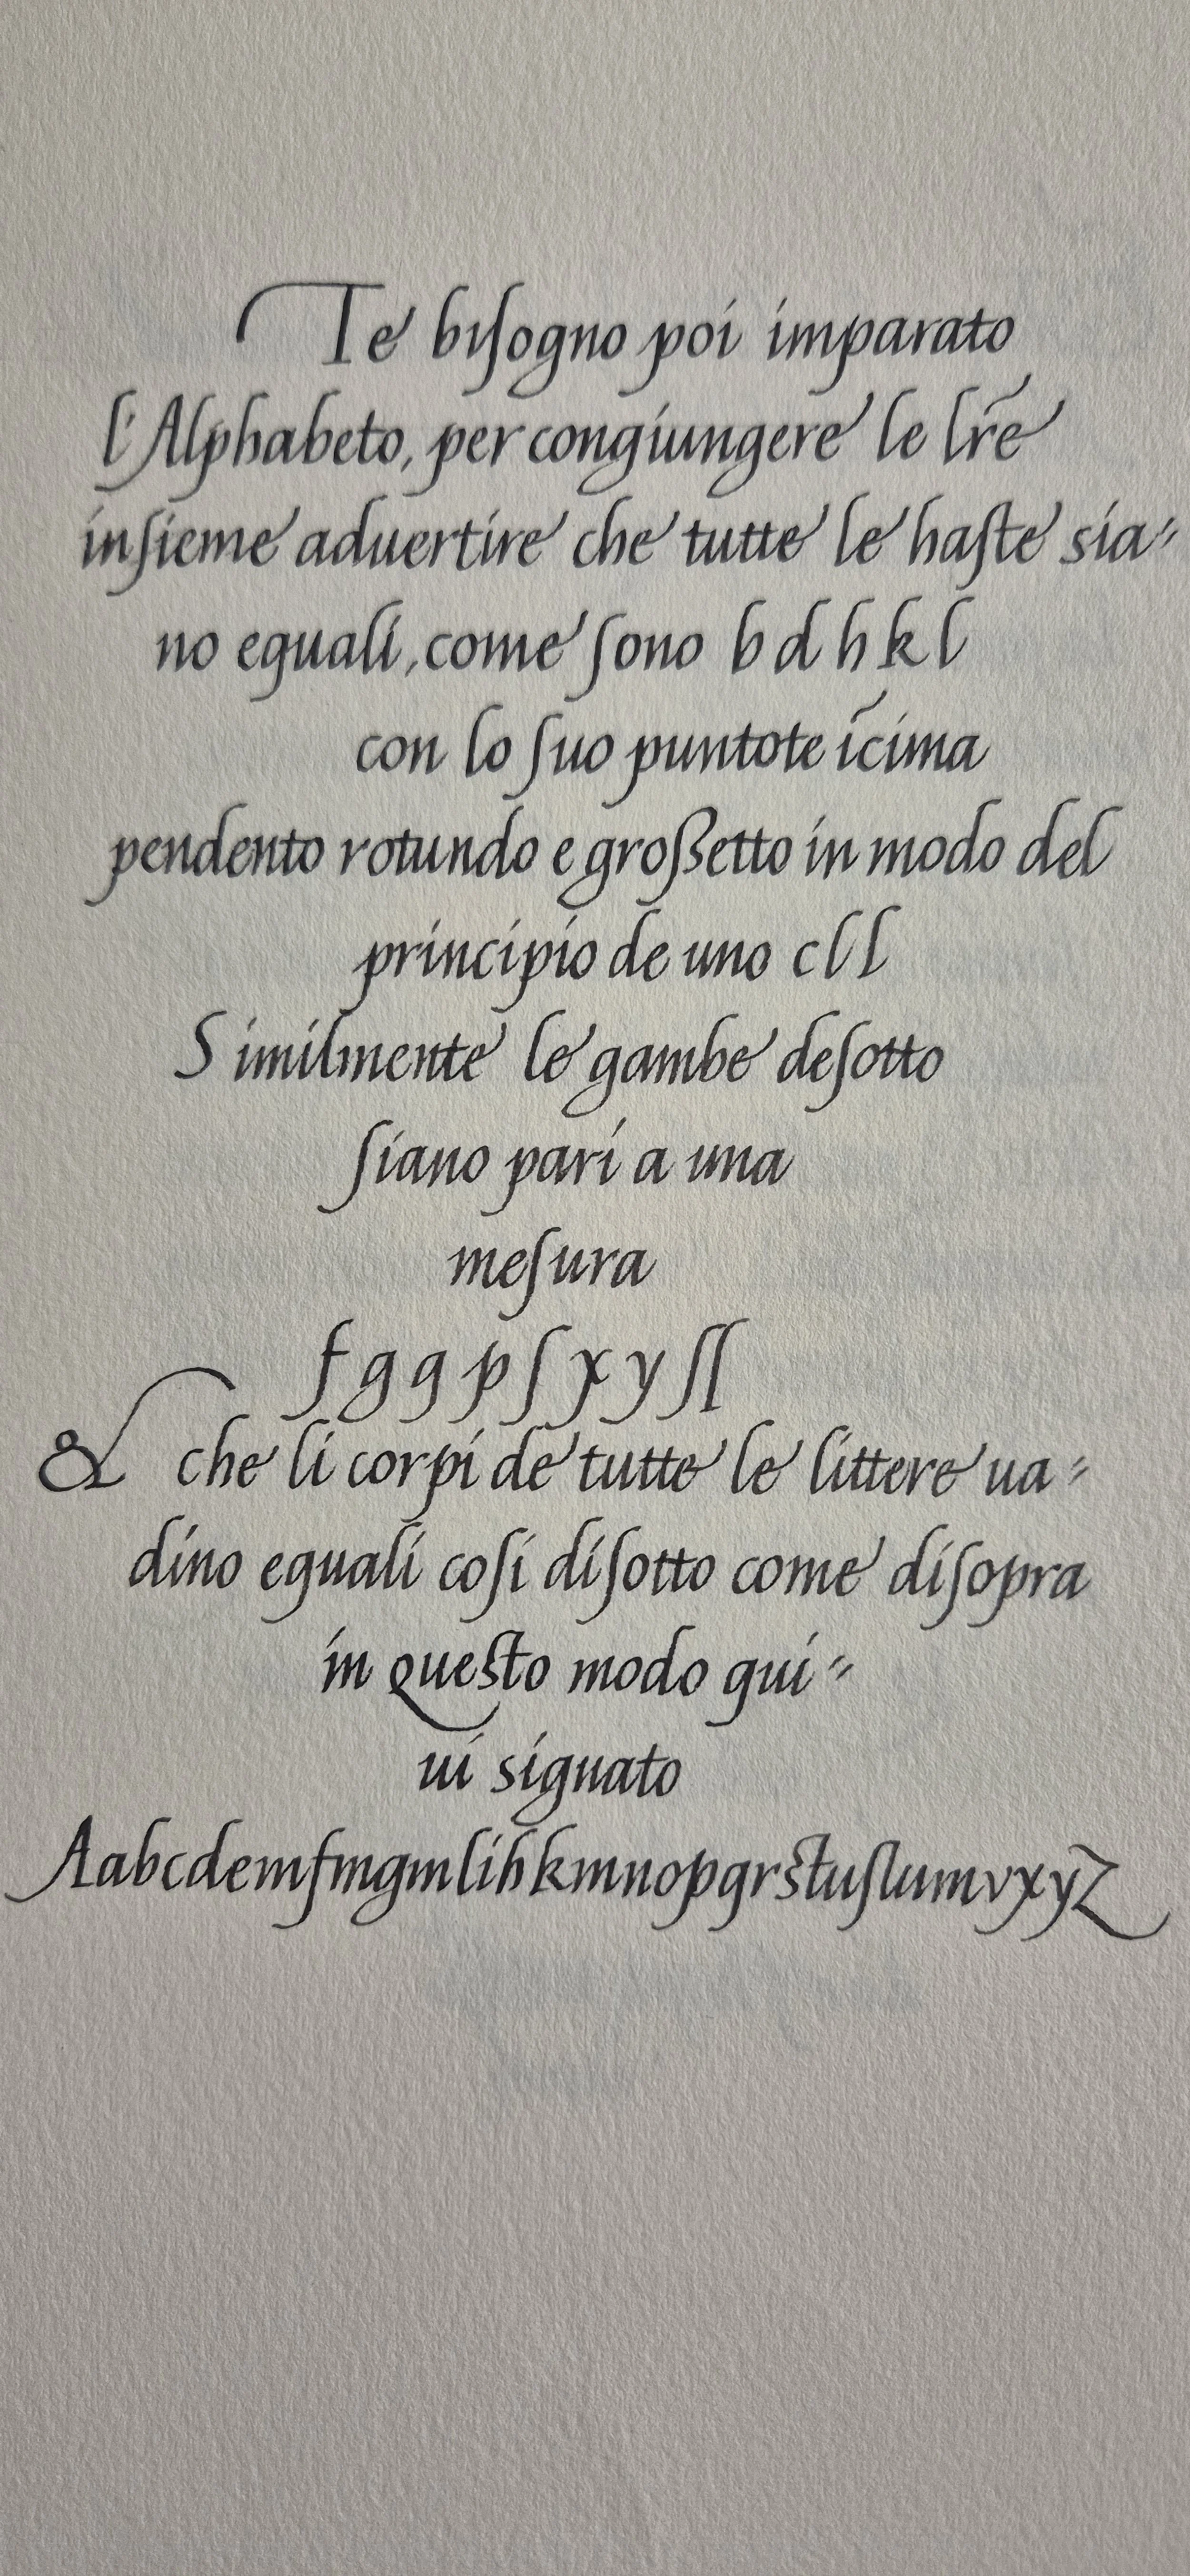 Te biſogno poi imparato
l'Alphabeto, per congiungere le lr̃e
inſieme aduertire che tutte le haſte sia=
no eguali, come ſono b d h k l
con lo ſuo puntote ĩcima
pendento rotundo e groſsetto in modo del
principio de uno c l l
Similmente le gambe deſotto
ſiano pari a una
meſura
f g g p ſ x y ſſ
& che li corpi de tutte le littere ua=
dino eguali coſi diſotto come diſopra
in Queſto modo qui=
ui signato
Aabcdemfmgmlihkmnopqrstuſlumvxyz